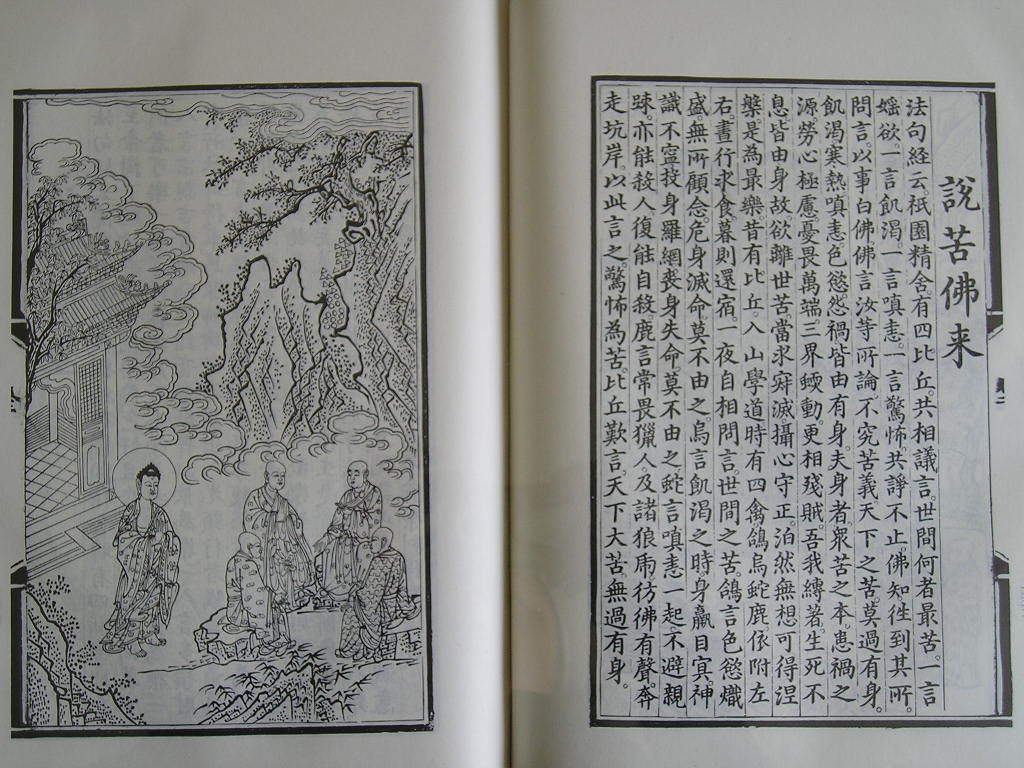 說苦佛来
法句經云。祇園精舍有四比丘。共相議言。世間何者最苦。一言
婬欲。一言飢渴。一言嗔恚。一言驚怖。共諍不止。佛知徃到其所。
問言。以事白佛。佛言汝等所論。不究苦義。天下之苦莫過有身。
飢渴寒熱。嗔恚色慾怨禍皆由有身。夫身者眾苦之本。患禍之
源。勞心極慮。憂畏萬端。三界蠕動。更相殘賊。吾我縛著。生死不
息。皆由身故。欲離世苦。當求寂滅。攝心守正。泊然無想。可得涅
槃。是為最樂。昔有比丘。入山學道。時有四禽。鴿烏蛇鹿。依附左
右。晝行求食。暮則還宿。一夜自相問言。世間之苦。鴿言色慾熾
盛。無所顧念。危身滅命。莫不由之。烏言飢渴之時。身羸目冥。神
識不寧。投身羅網。喪身失命。莫不由之。蛇言嗔恚一起。不避親
踈。亦能殺人。復能自殺。鹿言常畏獵人。及諸狼虎。彷彿有聲。奔
走坑岸。以此言之。驚怖為苦。比丘歎言。天下大苦。無過有身。